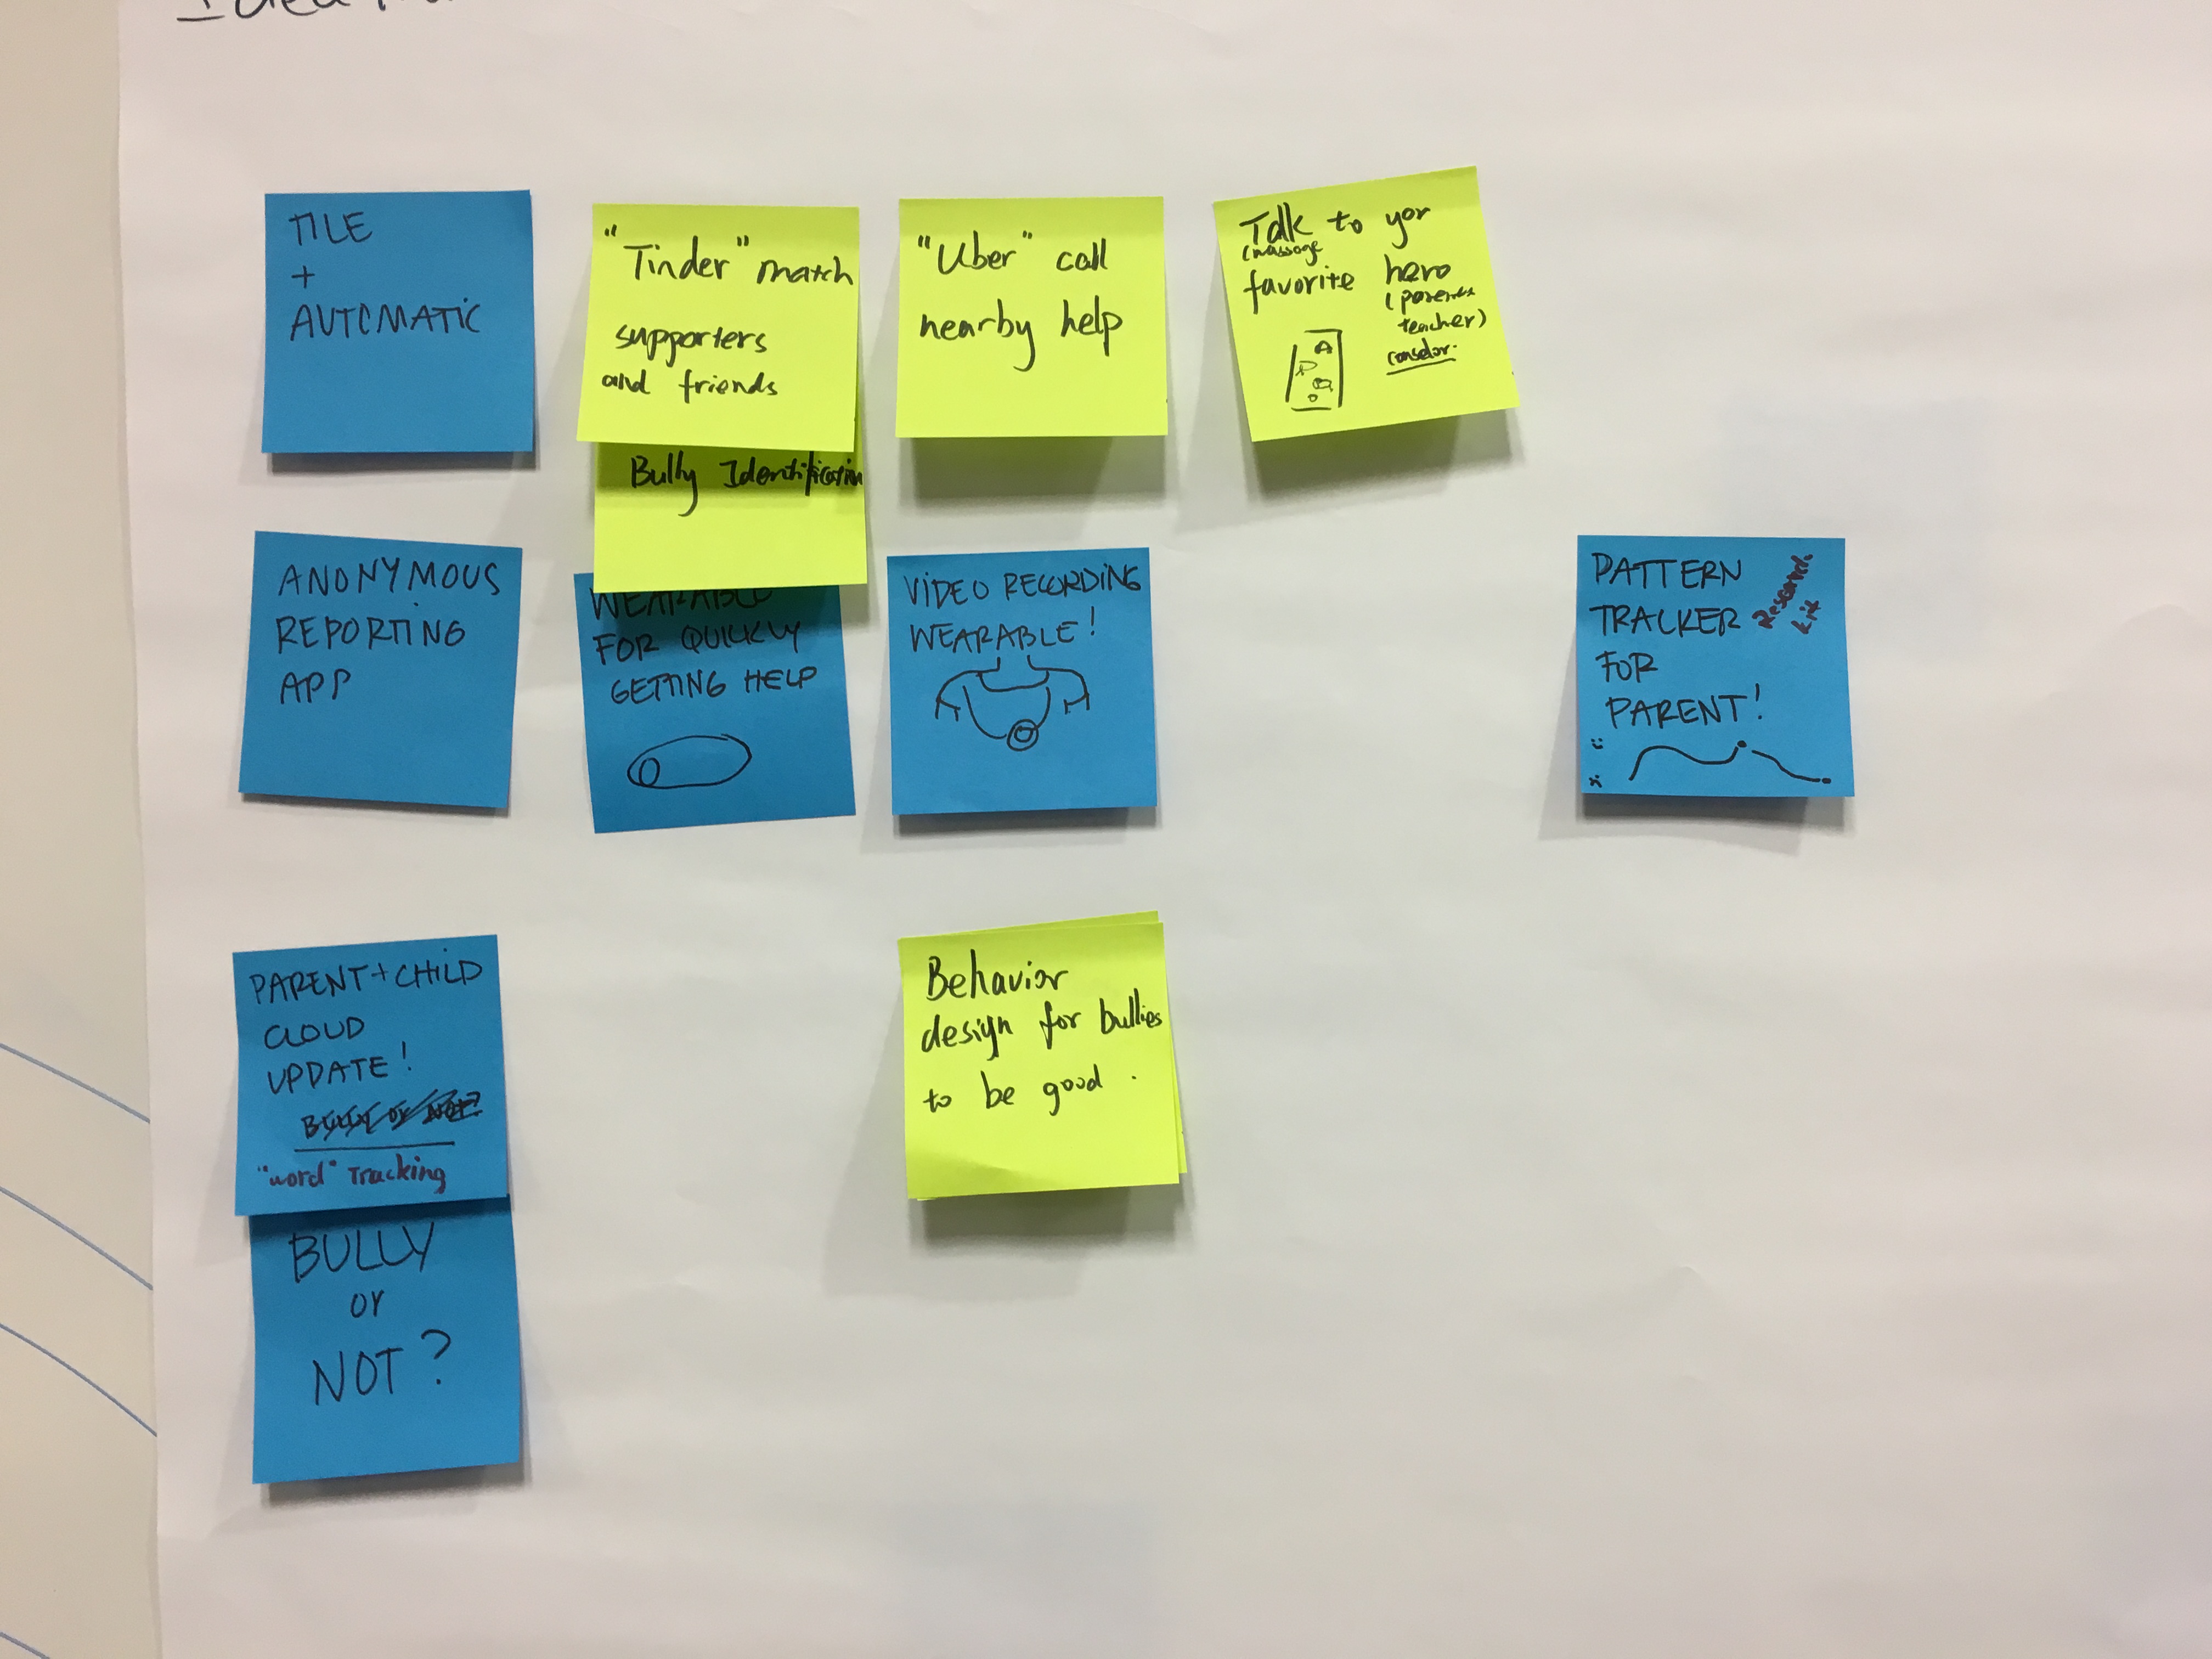 TILE
+
AUTOMATIC
"Tinder" match
supporters
and friends
Bully Identification
"Uber" call
nearby help
Talk to yor
(massage
favorite hero
(parents
teacher)
conselor.
ANONYMOUS
REPORTING
APP
WEARABLE
FOR QUICKLY
GETTING HELP
VIDEO RECORDING
WEARABLE!
PATTERN
TRACKER
FOR
PARENT!
Research
kit
PARENT + CHILD
CLOUD
UPDATE!
"word" Tracking
BULLY
or
NOT?
Behavior
design for bullies
to be good.